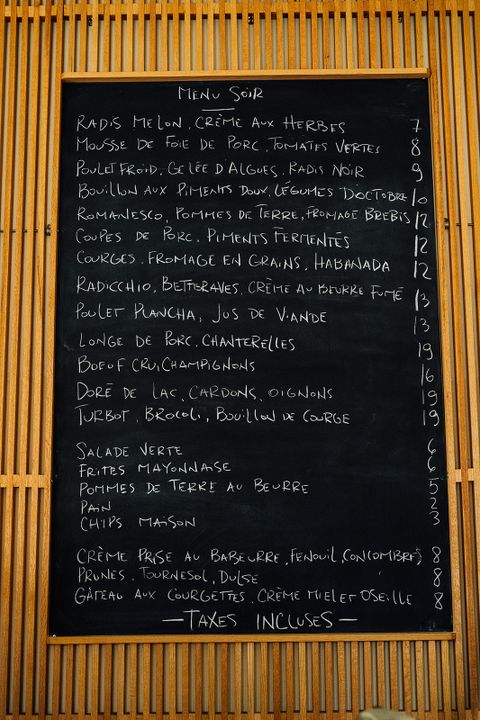 MENU SOIR
RADIS MELON, CRÈME AUX HERBES 7
MOUSSE DE FOIE DE PORC, TOMATES VERTES 8
POULET FROID, GELÉE D'ALGUES, RADIS NOIR 9
BOUILLON AUX PIMENTS DOUX, LÉGUMES D'OCTOBRE 10
ROMANESCO, POMMES DE TERRE, FROMAGE BREBIS 12
COUPES DE PORC, PIMENTS FERMENTÉS 12
COURGES, FROMAGE EN GRAINS, HABANADA 12
RADICCHIO, BETTERAVES, CRÈME AU BEURRE FUMÉ 13
POULET PLANCHA, JUS DE VIANDE 13
LONGE DE PORC, CHANTERELLES 19
BOEUF CRU, CHAMPIGNONS 16
DORÉ DE LAC, CARDONS, OIGNONS 19
TURBOT, BROCOLI, BOUILLON DE COURGE 19
SALADE VERTE 6
FRITES MAYONNAISE 6
POMMES DE TERRE AU BEURRE 5
PAIN 2
CHIPS MAISON 3
CRÈME PRISE AU BABEURRE, FENOUIL, CONCOMBRES 8
PRUNES, TOURNESOL, DULSE 8
GÂTEAU AUX COURGETTES, CRÈME MIEL ET OSEILLE 8
— TAXES INCLUSES —